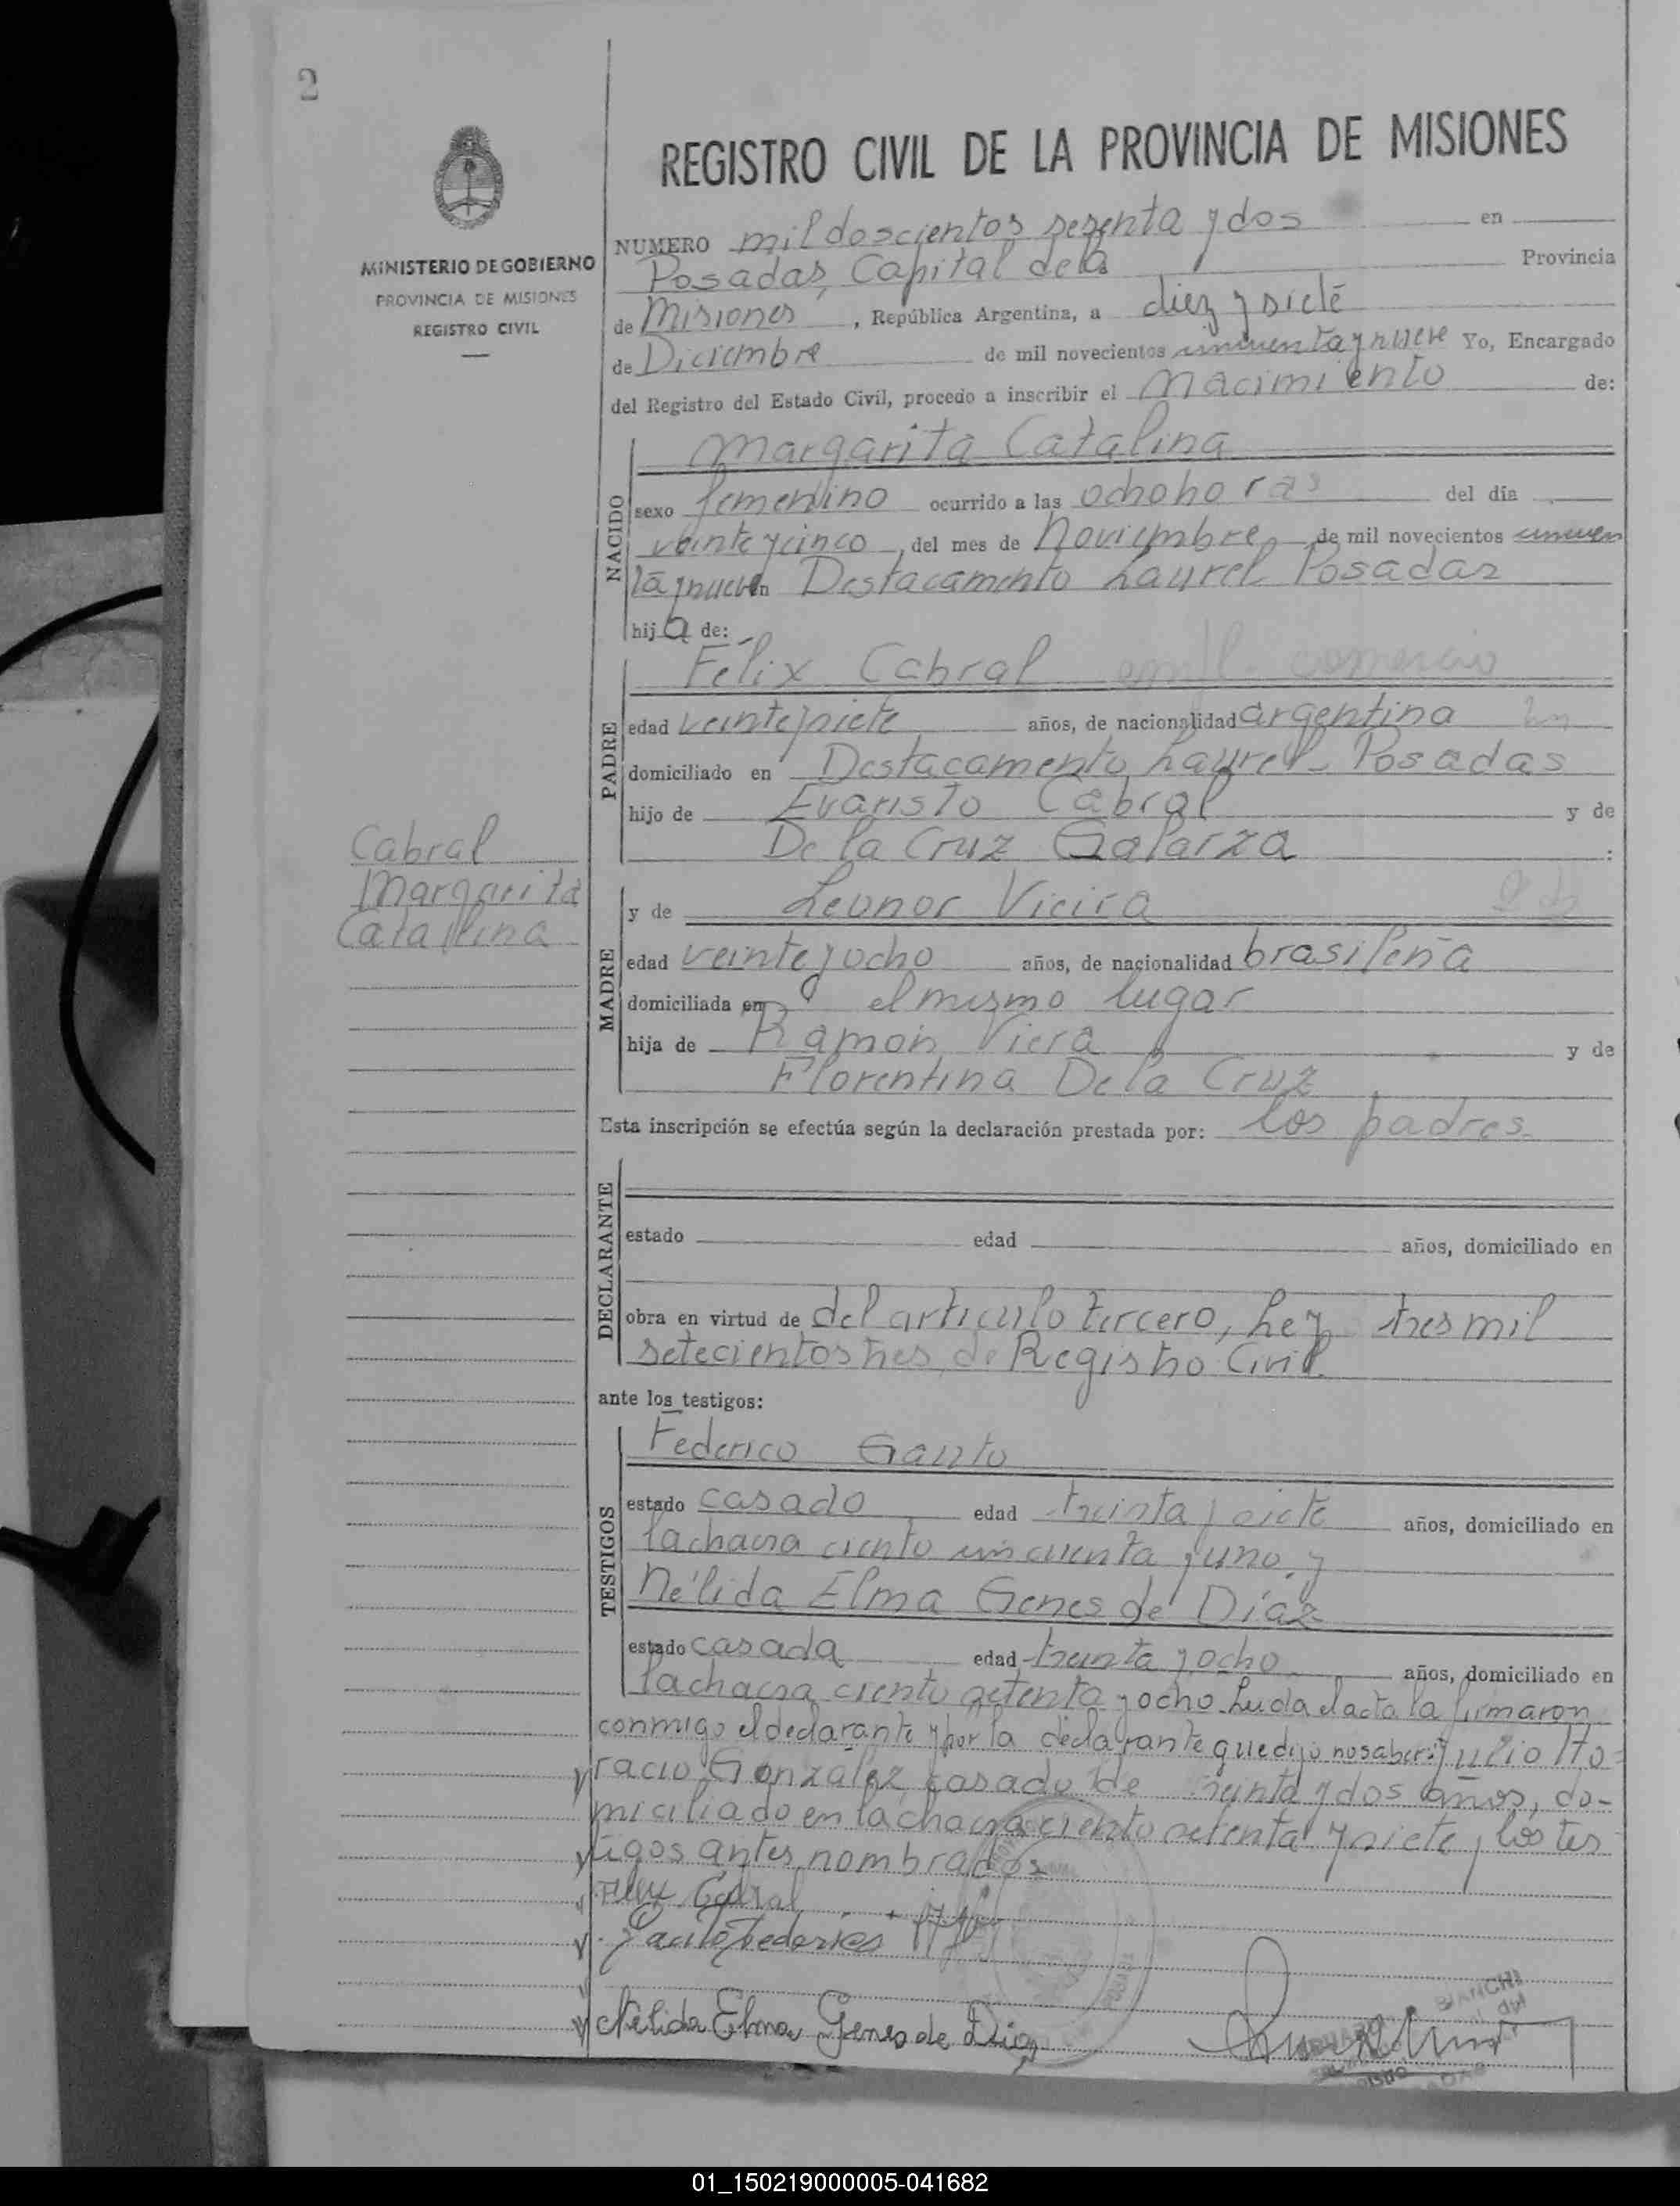 2
REGISTRO CIVIL DE LA PROVINCIA DE MISIONES
MINISTERIO DE GOBIERNO
PROVINCIA DE MISIONES
REGISTRO CIVIL
NUMERO mil doscientos sesenta y dos en
Posadas, Capital de la Provincia
de Misiones, República Argentina, a diez y siete
de Diciembre de mil novecientos cincuenta y nueve Yo, Encargado
del Registro del Estado Civil, procedo a inscribir el Nacimiento de:
NACIDO
Margarita Catalina
sexo femenino ocurrido a las ocho horas del día
veinte y cinco, del mes de Noviembre de mil novecientos cincuen
ta y nueve en Destacamento Laurel Posadas
hija de:
PADRE
Félix Cabral empl. comercio
edad veinte y siete años, de nacionalidad argentina
domiciliado en Destacamento Laurel - Posadas
hijo de Evaristo Cabral y de
De la Cruz Galarza :
Cabral
Margarita
Catalina
MADRE
y de Leonor Vieira
edad veinte y ocho años, de nacionalidad brasileña
domiciliada en el mismo lugar
hija de Ramón Viera y de
Florentina De la Cruz
Esta inscripción se efectúa según la declaración prestada por: los padres
DECLARANTE
estado edad años, domiciliado en
obra en virtud de del articulo tercero, Ley tres mil
setecientos tres de Registro Civil.
ante los testigos:
TESTIGOS
Federico Gauto
estado casado edad treinta y siete años, domiciliado en
la chacra ciento cincuenta y uno. y
Nélida Elma Genes de Díaz
estado casada edad treinta y ocho años, domiciliado en
la chacra ciento setenta y ocho. Leida el acta la firmaron
conmigo el declarante y por la declarante que dijo no saber: Julio Ho=
racio González, casado de treinta y dos años, do-
miciliado en la chacra ciento setenta y siete y los tes
tigos antes nombrados
Felix Cabral
Gauto Federico
Nélida Elma Genes de Diaz
BIANCHI
01_150219000005-041682